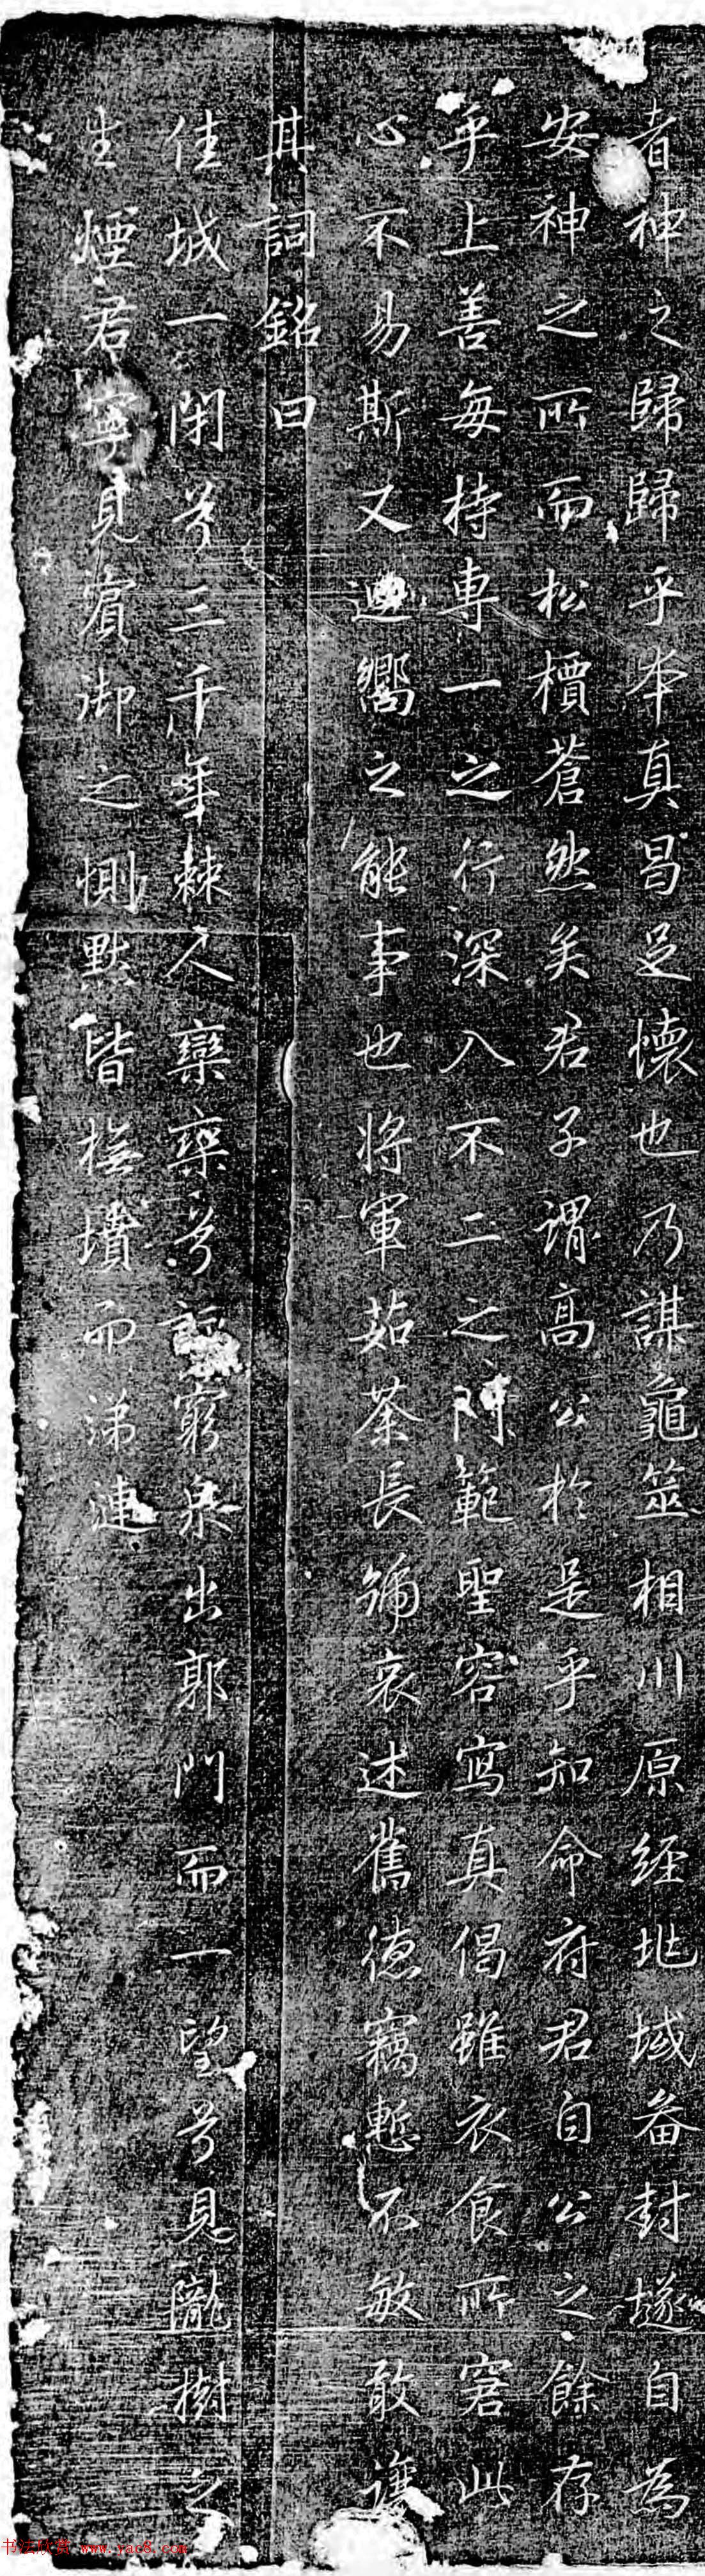 者神之歸歸乎本真曷足懷也乃謀龜筮相川原經垗域备封燧自為
安神之所而松檟蒼然矣君子謂高公於是乎知命府君自公之餘存
乎上善每持專一之行深入不二之門範聖容寫真偈雖衣食所窘此
心不易斯又迴嚮之能事也將軍茹荼長號哀述舊德竊慙不敏敢讓
其詞銘曰
佳城一閉兮三千年棘人欒欒兮窮泉出郭門而一望兮見隴樹之
生煙君寧見賓御之惻默皆撫墳而涕漣
书法欣赏 www.yac8.com